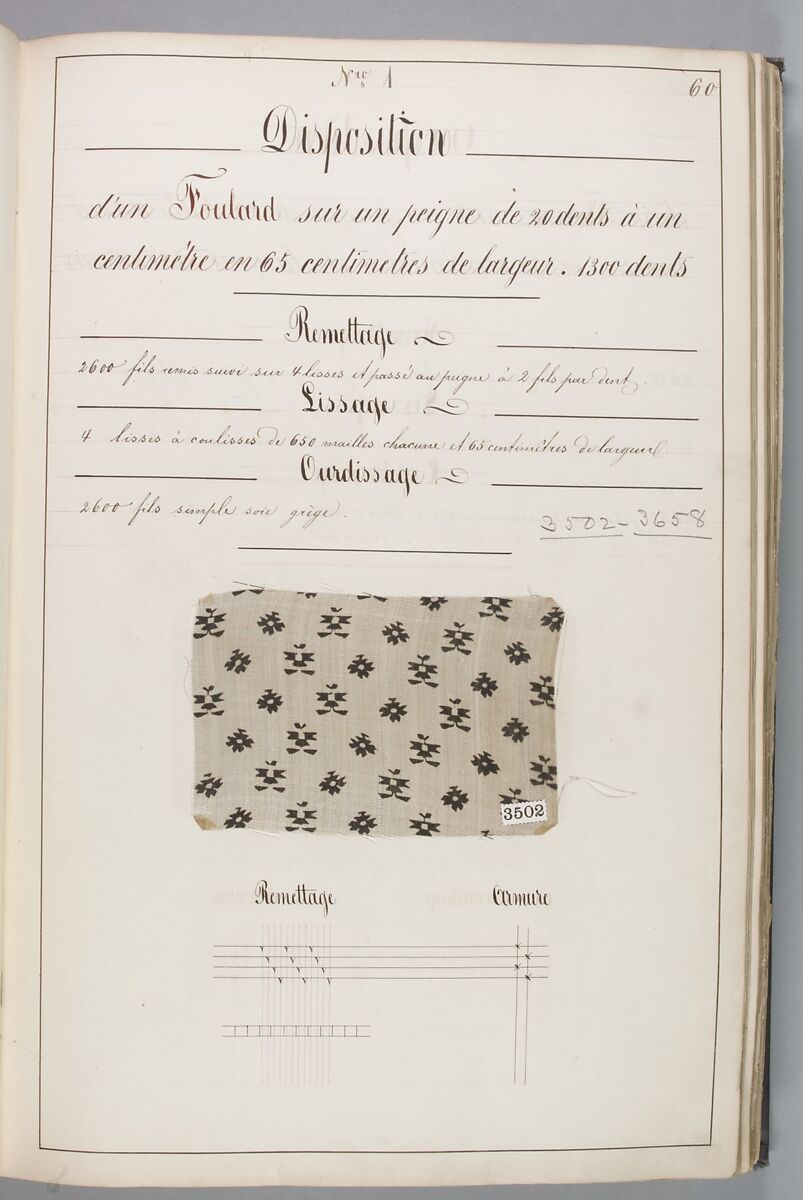 Nro 1
60
Disposition
d'un Foulard sur un peigne de 20 dents à un
centimètre en 65 centimetres de largeur. 1300 dents
Remettage
2600 fils remis suivi sur 4 lisses et passé au peigne à 2 fils par dent
Lissage
4 lisses à coulisses de 650 mailles chacune et 65 centimètres de largeur
Ourdissage
2600 fils simple soie grège.
3502-3658
3502
Remettage Armure